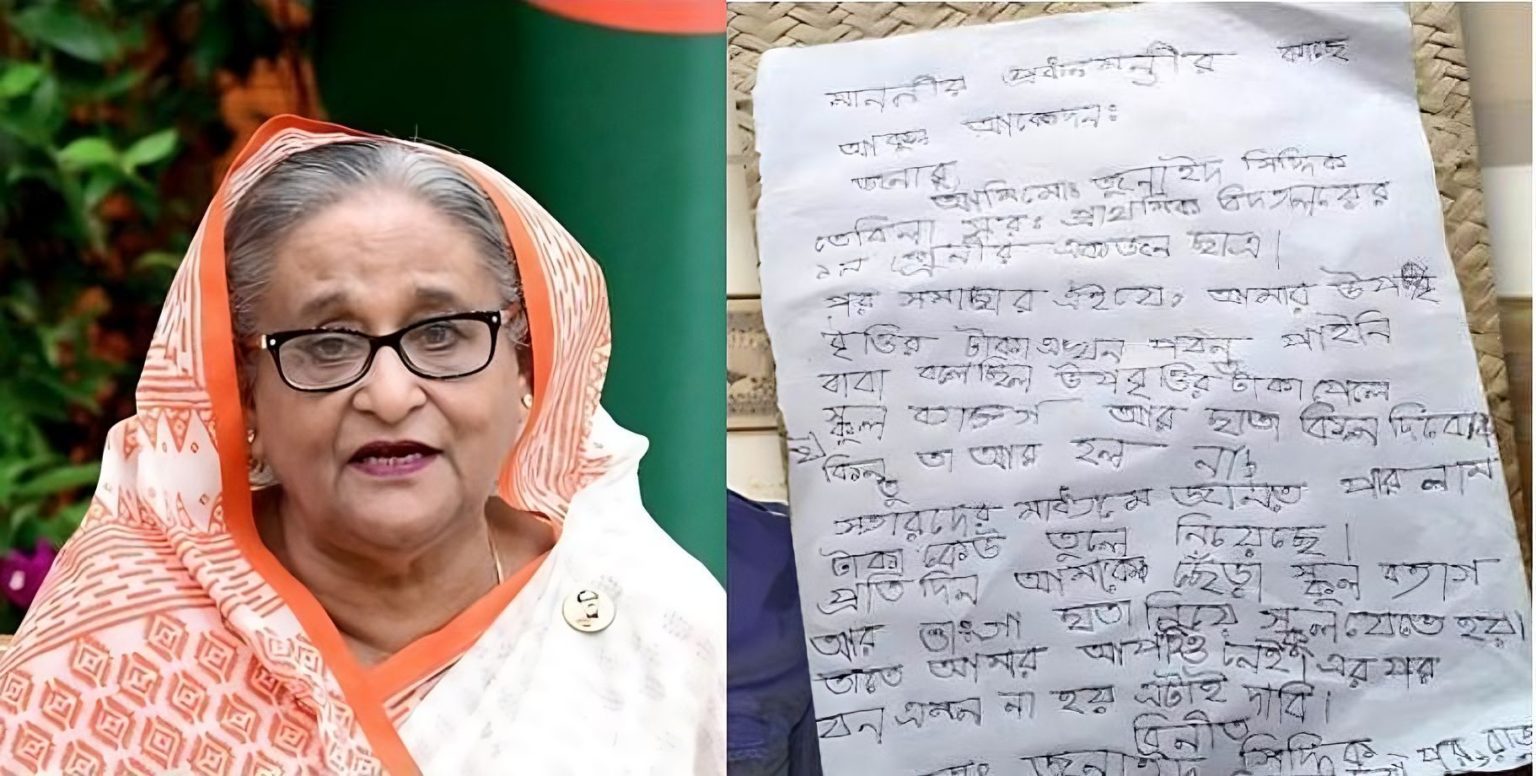 মাননীয় প্রধানমন্ত্রীর কাছে
আকুল আবেদন:
জনাব,
আমি মো: জুনাইদ সিদ্দিক
সর: প্রাথমিক
শ্রেনীর একজন ছাত্র।
পর সমাচার এই যে, আমার উপ
বৃত্তির টাকা এখন পযন্ত পাইনি
বাবা বলেছিল উপবৃত্তির টাকা পেলে
স্কুল ব্যাগ আর ছাতা কিনে দিবে
কিন্তু তা আর হল না;
স্যারদের মাধ্যমে জানতে পারলাম
টাকা কেউ তুলে নিয়েছে।
প্রতি দিন আমাকে ছেঁড়া স্কুল ব্যাগ
আর ভাংগা ছাতা নিয়ে স্কুল যেতে হয়।
তাতে আমার আপত্তি নেই। এর পর
যেন এমন না হয় এটাই দাবি।
বিনীত
জুনাইদ সিদ্দিক